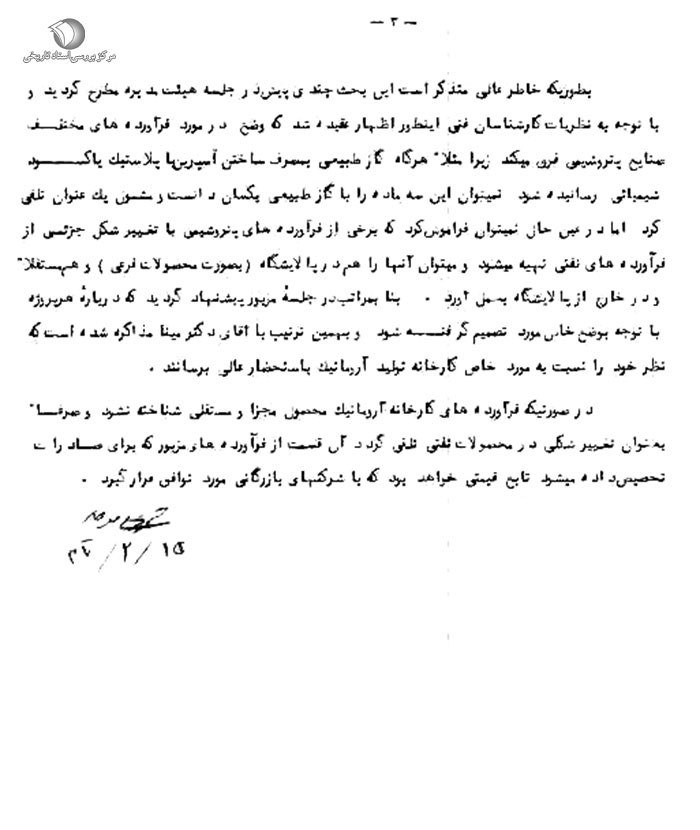 مرکز بررسی اسناد تاریخی
— ۲ —
بطوریکه خاطر عالی متذکر است این بحث چندی پیش در جلسه هیئت مدیره مطرح گردید و
با توجه به نظریات کارشناسان فنی اینطور اظهار عقیده شد که وضع در مورد فرآورده های مختلف
صنایع پتروشیمی فرق میکند زیرا مثلاً هرگاه گاز طبیعی بمصرف ساختن آسپرین یا پلاستیک یا کود
شیمیائی رسانیده شود نمیتوان این سه ماده را با گاز طبیعی یکسان دانست و مشمول یک عنوان تلقی
کرد اما در عین حال نمیتوان فراموش کرد که برخی از فرآورده های پتروشیمی با تغییر شکل جزئی از
فرآورده های نفتی تهیه میشود و میتوان آنها را هم در پالایشگاه (بصورت محصولات فرعی) و هم مستقلاً
و در خارج از پالایشگاه بعمل آورد . بنا بمراتب در جلسهٔ مزبور پیشنهاد گردید که دربارهٔ هر پروژه
با توجه بوضع خاص مورد تصمیم گرفته شود و بهمین ترتیب با آقای دکتر مینا مذاکره شده است که
نظر خود را نسبت به مورد خاص کارخانه تولید آروماتیک باستحضار عالی برسانند .
در صورتیکه فرآورده های کارخانه آروماتیک محصول مجزا و مستقلی شناخته نشود و صرفاً
بعنوان تغییر شکلی در محصولات نفتی تلقی گردد آن قسمت از فرآورده های مزبور که برای صادرات
تخصیص داده میشود تابع قیمتی خواهد بود که با شرکتهای بازرگانی مورد توافق قرار گیرد .
۱۵ / ۲ /